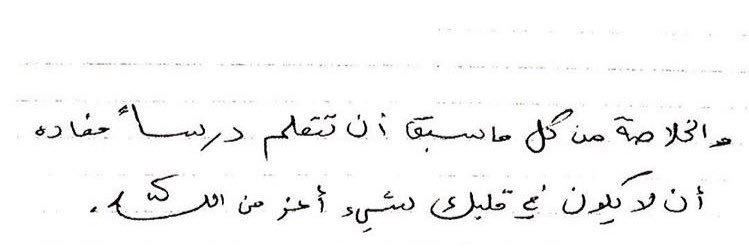 والخلاصة من كل ما سبق أن تتعلم درساً مفاده
أن لا يكون في قلبك شيء أعز من الله.